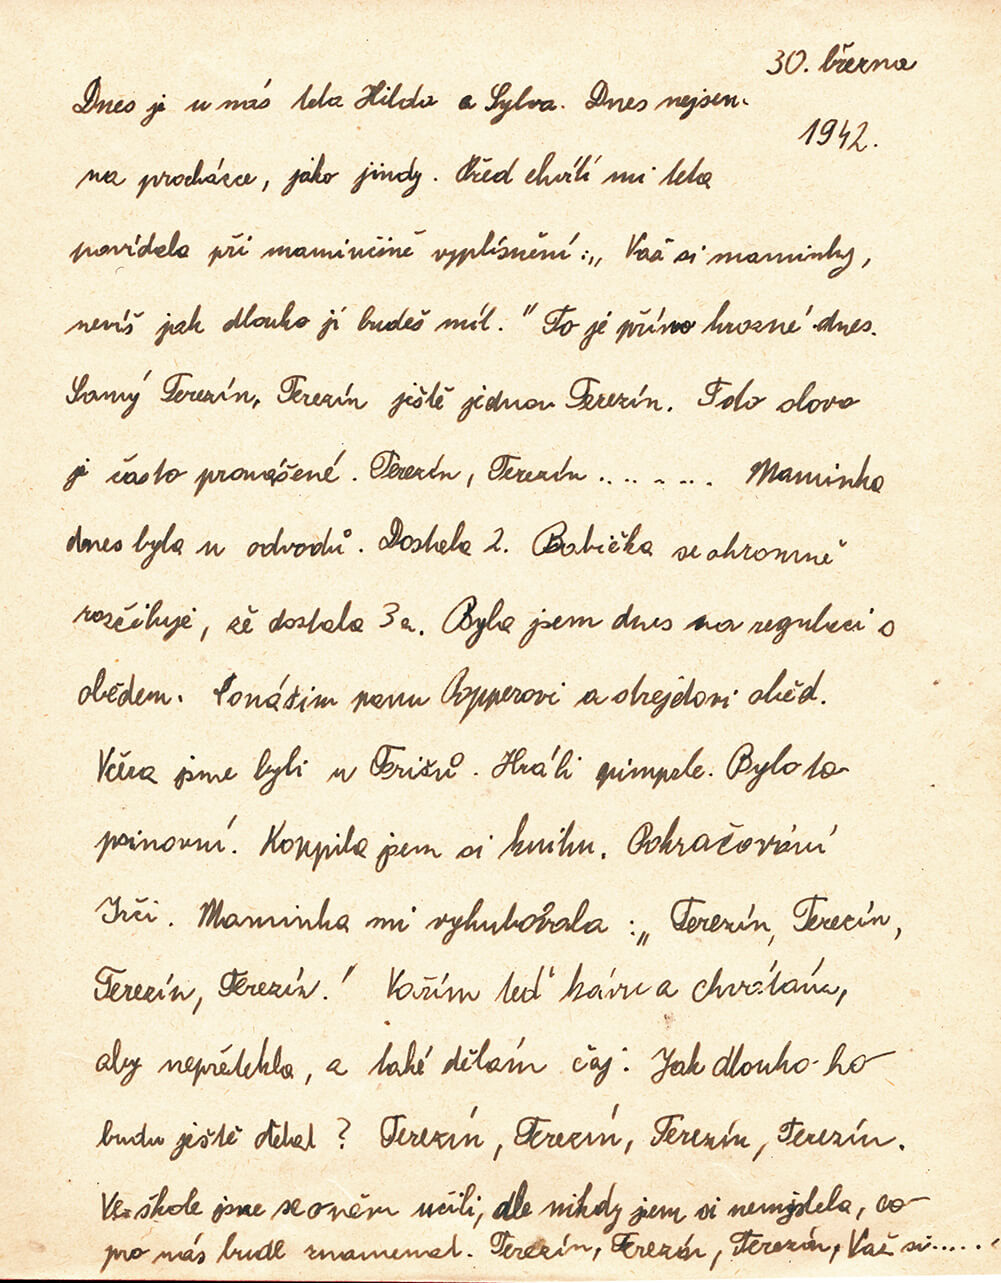 30. března
Dnes je u nás teta Hilda a Sylva. Dnes nejsem
1942.
na procházce, jako jindy. Před chvílí mi teta
povídala při maminčině vyplísnění:„ Važ si maminky,
nevíš jak dlouho jí budeš mít." To je přímo hrozné dnes.
Samý Terezín, Terezín ještě jednou Terezín. Toto slovo
je často pronášené. Terezín, Terezín ........ Maminka
dnes byla u odvodů. Dostala 2. Babička se ohromně
rozčiluje, že dostala 3 a. Byla jsem dnes na regulaci s
obědem. Donáším panu Popperovi a oběd.
Včera jsme byli u . Hráli pimprle. Bylo to
psinovní. Koupila jsem si knihu. Pokračování
Irči. Maminka mi vyhubovala :„ Terezín, Terezín,
Terezín, Terezín." Vařím teď kávu a chvátám,
aby nepřetekla, a také dělám čaj. Jak dlouho ho
budu ještě dělat ? Terezín, Terezín, Terezín, Terezín.
Ve škole jsme se o něm učili, ale nikdy jsem si nemyslela, co
pro nás bude znamenat. Terezín, Terezín, Terezín, Važ si.....'